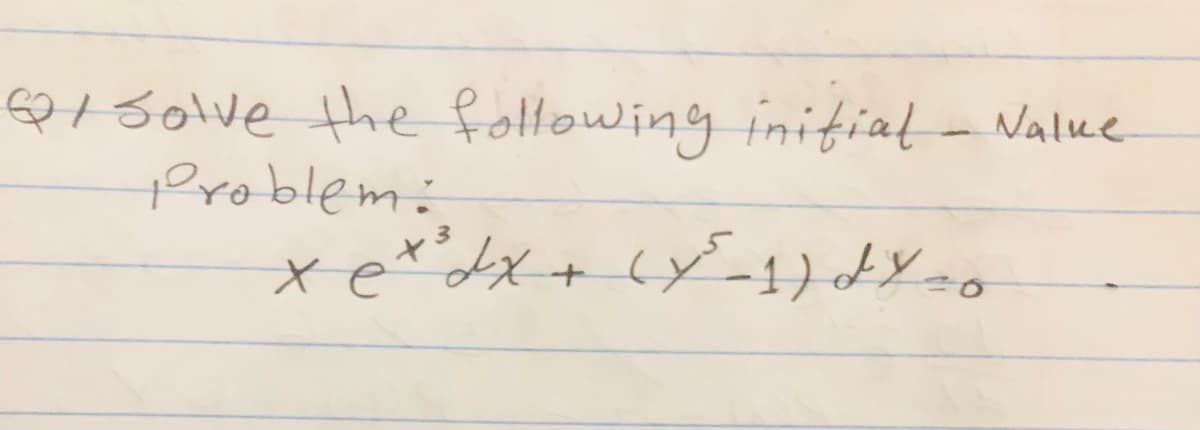 Q/ Solve the following initial - Value
Problem:
x e^x^3 dx + (y^5 - 1) dy = 0 .